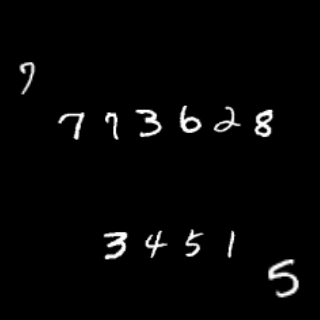 7
773628
3451
5